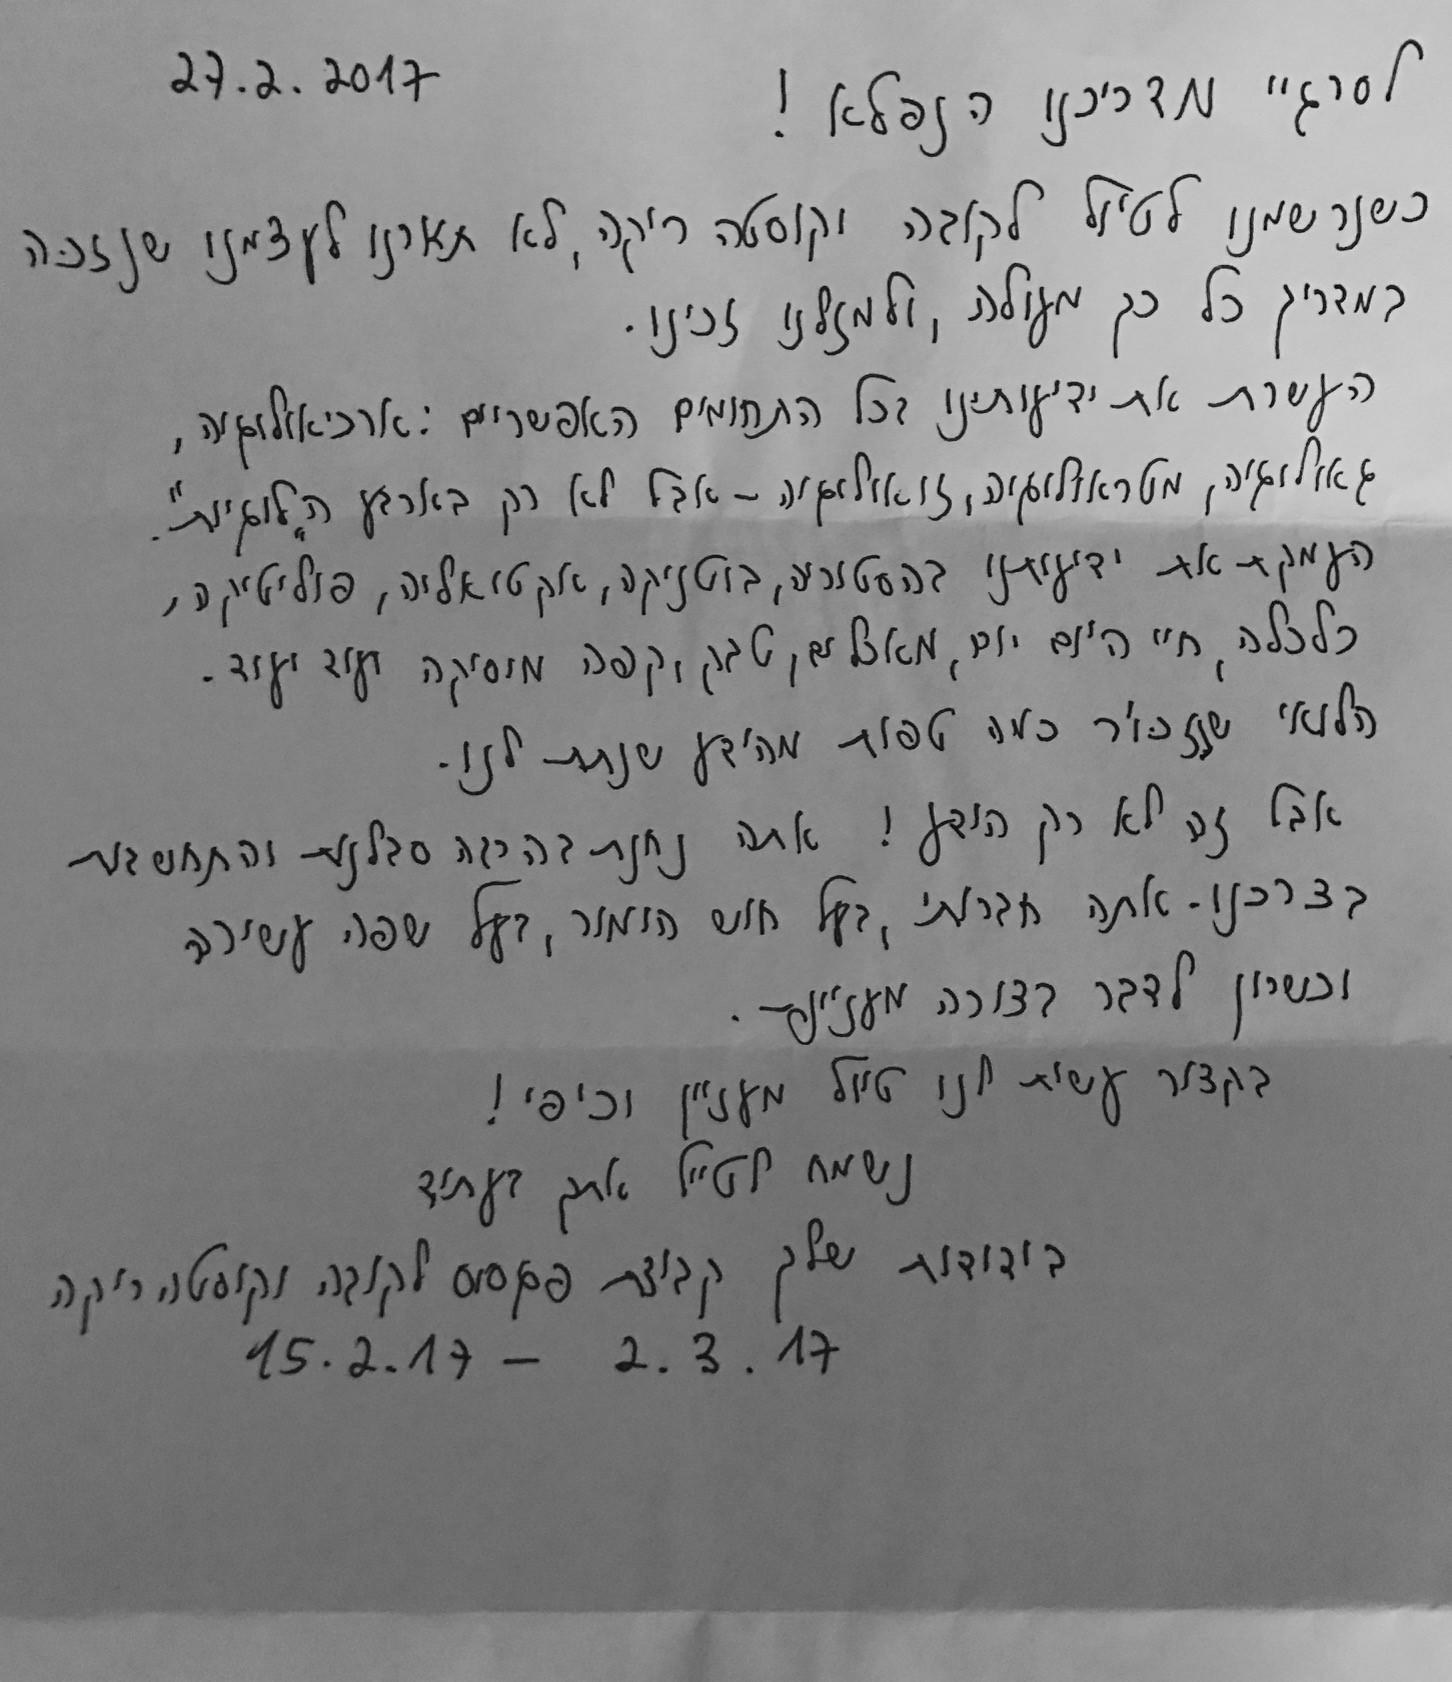 27.2.2017
לסרגיי מדריכנו הנפלא!
כשנרשמנו לטיול לקובה וקוסטה ריקה, לא תארנו לעצמנו שנזכה
במדריך כל כך מעולה, ולמזלנו זכינו.
העשרת את ידיעותינו בכל התחומים האפשריים: ארכיאולוגיה,
גאולוגיה, מטראולוגיה, זואולוגיה – אבל לא רק בארבע ה"לוגיות".
העמקת את ידיעותנו בהסטוריה, בוטניקה, אקטואליה, פוליטיקה,
כלכלה, חיי היום יום, מאכלים, טבק, קפה מוסיקה ועוד ועוד.
הלואי שנזכור כמה טפות מהידע שנתת לנו.
אבל זה לא רק הידע! אתה נחנת בהרבה סבלנות והתחשבות
בצרכנו. אתה חברותי, בעל חוש הומור, בעל שפה עשירה
וכשרון לדבר בצורה מעניינת.
בקצור עשית לנו טיול מעניין וכיפי!
נשמח לטייל אתך בעתיד
בידידות שלך קבוצת פגסוס לקובה וקוסטה ריקה
15.2.17 – 2.3.17